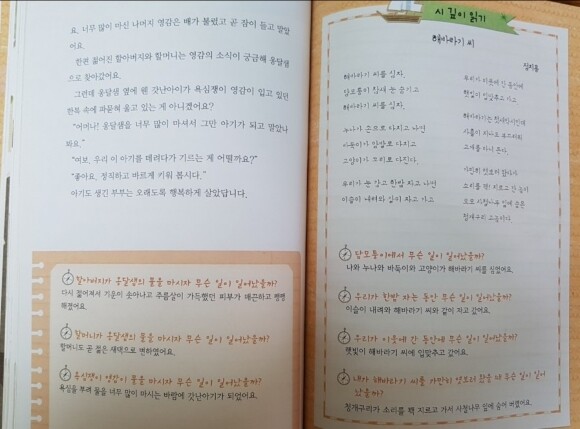 요. 너무 많이 마신 나머지 영감은 배가 불렀고 곧 잠이 들고 말았
어요.
한편 젊어진 할아버지와 할머니는 영감의 소식이 궁금해 옹달샘
으로 찾아갔어요.
그런데 옹달샘 옆에 웬 갓난아이가 욕심쟁이 영감이 입고 있던
한복 속에 파묻혀 울고 있는 게 아니겠어요?
"어머나! 옹달샘을 너무 많이 마셔서 그만 아기가 되고 말았나
봐요."
"여보, 우리 이 아기를 데려다가 기르는 게 어떨까요?"
"좋아요. 정직하고 바르게 키워 봅시다."
아기도 생긴 부부는 오래도록 행복하게 살았답니다.
할아버지가 옹달샘의 물을 마시자 무슨 일이 일어났을까?
다시 젊어져서 기운이 솟아나고 주름살이 가득했던 피부가 매끈하고 팽팽
해졌어요.
할머니가 옹달샘의 물을 마시자 무슨 일이 일어났을까?
할머니도 곧 젊은 새댁으로 변하였어요.
욕심쟁이 영감이 물을 마시자 무슨 일이 일어났을까?
욕심을 부려 물을 너무 많이 마시는 바람에 갓난아기가 되었어요.
시 깊이 읽기
해바라기 씨
정지용
해바라기 씨를 심자.
담모롱이 참새 눈 숨기고
해바라기 씨를 심자.
누나가 손으로 다지고 나면
바둑이가 앞발로 다지고
고양이가 꼬리로 다진다.
우리가 눈 감고 한밤 자고 나면
이슬이 내려와 같이 자고 가고
우리가 이웃에 간 동안에
햇빛이 입맞추고 가고
해바라기는 첫시악시인데
사흘이 지나도 부끄러워
고개를 아니 든다.
가만히 엿보러 왔다가
소리를 꽥! 지르고 간 놈이
오오 사철나무 잎에 숨은
청개구리 고놈이다.
담모롱이에서 무슨 일이 일어났을까?
나와 누나와 바둑이와 고양이가 해바라기 씨를 심었어요.
우리가 한밤 자는 동안 무슨 일이 일어났을까?
이슬이 내려와 해바라기 씨와 같이 자고 갔어요.
우리가 이웃에 간 동안에 무슨 일이 일어났을까?
햇빛이 해바라기 씨에 입맞추고 갔어요.
내가 해바라기 씨를 가만히 엿보러 왔을 때 무슨 일이 일어
났을까?
청개구리가 소리를 꽥 지르고 가서 사철나무 잎에 숨어 버렸어요.